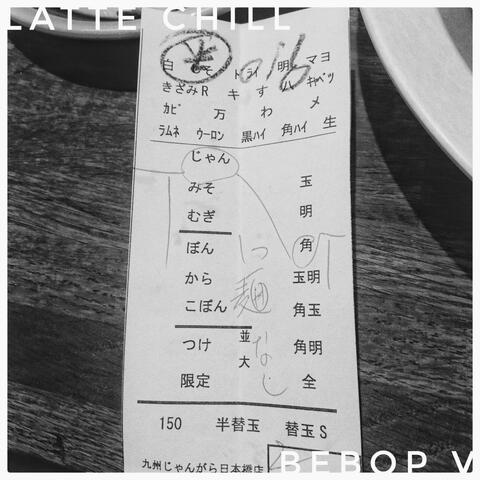 LATTE CHILL
白 みそ トライ 明 マヨ
きざみR キ す ハ キャベツ
カビ 万 わ メ
ラムネ ウーロン 黒ハイ 角ハイ 生
じゃん
みそ 玉
むぎ 明
ぼん 角
から 玉明
こぼん 角玉
つけ 並 角明
限定 大 全
麺なし
150 半替玉 替玉S
九州じゃんがら日本橋店
BEBOP V